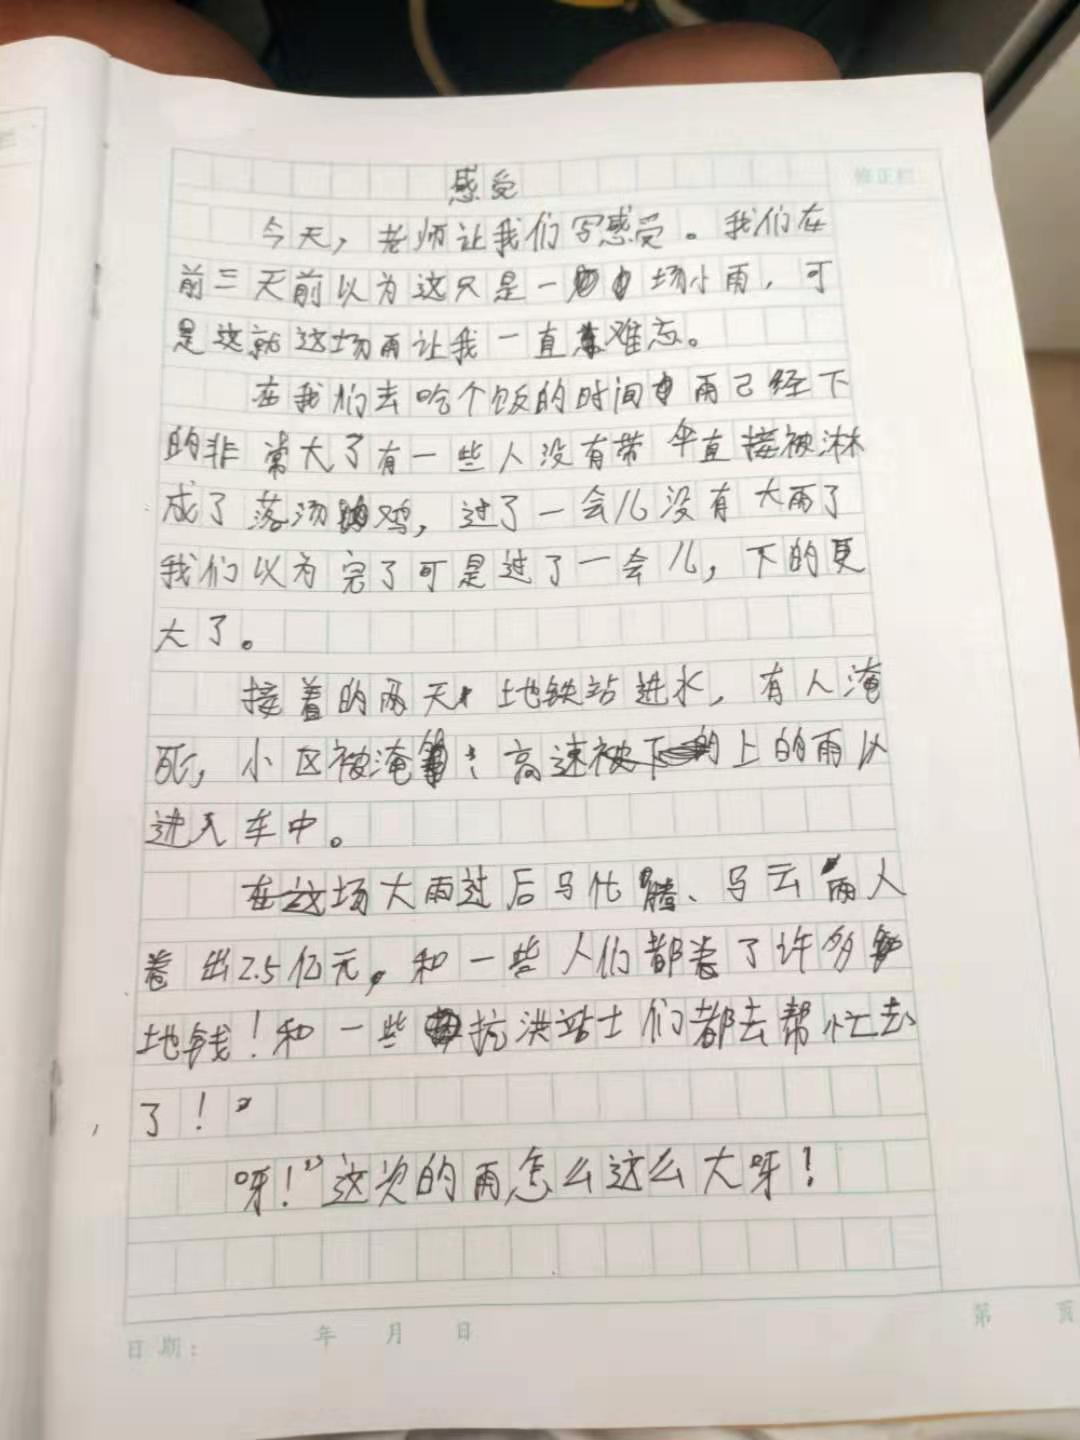 修正栏
感受
今天，老师让我们写感受。我们在
前三天前以为这只是一场小雨，可
是这就这场雨让我一直难忘。
在我们去吃个饭的时间雨已经下
的非常大了有一些人没有带伞直接被淋
成了落汤鸡，过了一会儿没有大雨了
我们以为完了可是过了一会儿，下的更
大了。
接着的两天地铁站进水，有人淹
死，小区被淹；高速上的雨以
进入车中。
在这场大雨过后马化腾、马云两人
卷出2.5亿元，和一些人们都卷了许多
地钱！和一些抗洪站士们都去帮忙去
了！”
呀！”这次的雨怎么这么大呀！
日期： 年 月 日
第 页